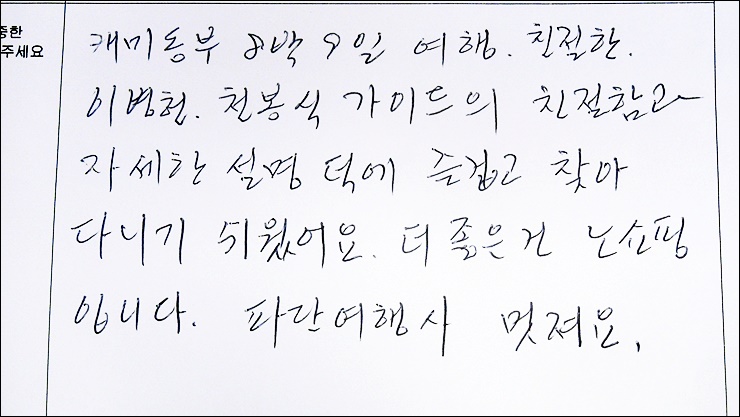 중한
주세요
캐미동부 8박 9일 여행. 친절한.
이병헌. 천봉식 가이드의 친절함과
자세한 설명 덕에 즐겁고 찾아
다니기 쉬웠어요. 더 좋은건 노쇼핑
입니다. 파란여행사 멋져요.